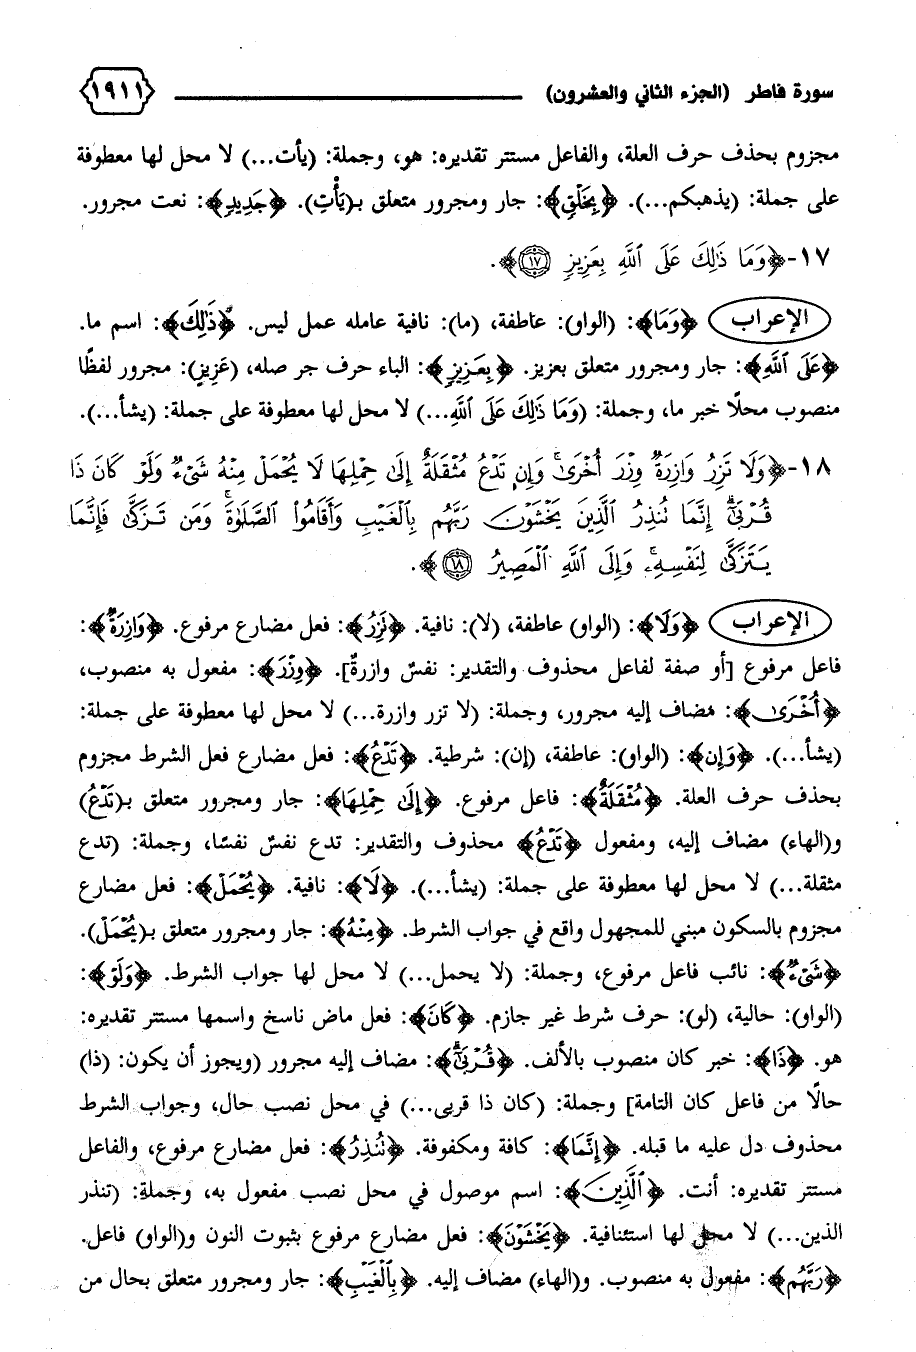 سورة فاطر (الجزء الثاني والعشرون) ١٩١١
مجزوم بحذف حرف العلة، والفاعل مستتر تقديره: هو، وجملة: (يأت...) لا محل لها معطوفة
على جملة: (يذهبكم...). ﴿بِخَلْقٍ﴾: جار ومجرور متعلق بـ(يَأْتِ). ﴿جَدِيدٍ﴾: نعت مجرور.
١٧- ﴿وَمَا ذَٰلِكَ عَلَى ٱللَّهِ بِعَزِيزٍ ١٧﴾.
الإعراب ﴿وَمَا﴾: (الواو): عاطفة، (ما): نافية عامله عمل ليس. ﴿ذَٰلِكَ﴾: اسم ما.
﴿عَلَى ٱللَّهِ﴾: جار ومجرور متعلق بعزيز. ﴿بِعَزِيزٍ﴾: الباء حرف جر صله، (عَزِيزٍ): مجرور لفظًا
منصوب محلًا خبر ما، وجملة: (وَمَا ذَٰلِكَ عَلَى ٱللَّهِ...) لا محل لها معطوفة على جملة: (يشأ...).
١٨- ﴿وَلَا تَزِرُ وَازِرَةٌ وِزْرَ أُخْرَىٰ ۚ وَإِن تَدْعُ مُثْقَلَةٌ إِلَىٰ حِمْلِهَا لَا يُحْمَلْ مِنْهُ شَىْءٌ وَلَوْ كَانَ ذَا
قُرْبَىٰٓ ۗ إِنَّمَا تُنذِرُ ٱلَّذِينَ يَخْشَوْنَ رَبَّهُم بِٱلْغَيْبِ وَأَقَامُوا۟ ٱلصَّلَوٰةَ ۚ وَمَن تَزَكَّىٰ فَإِنَّمَا
يَتَزَكَّىٰ لِنَفْسِهِۦ ۚ وَإِلَى ٱللَّهِ ٱلْمَصِيرُ ١٨﴾.
الإعراب ﴿وَلَا﴾: (الواو) عاطفة، (لا): نافية. ﴿تَزِرُ﴾: فعل مضارع مرفوع. ﴿وَازِرَةٌ﴾:
فاعل مرفوع [أو صفة لفاعل محذوف والتقدير: نفسٌ وازرةٌ]. ﴿وِزْرَ﴾: مفعول به منصوب،
﴿أُخْرَىٰ﴾: مضاف إليه مجرور، وجملة: (لا تزر وازرة...) لا محل لها معطوفة على جملة:
(يشأ...). ﴿وَإِن﴾: (الواو): عاطفة، (إن): شرطية. ﴿تَدْعُ﴾: فعل مضارع فعل الشرط مجزوم
بحذف حرف العلة. ﴿مُثْقَلَةٌ﴾: فاعل مرفوع. ﴿إِلَىٰ حِمْلِهَا﴾: جار ومجرور متعلق بـ(تَدْعُ)
و(الهاء) مضاف إليه، ومفعول ﴿تَدْعُ﴾ محذوف والتقدير: تدع نفسٌ نفسًا، وجملة: (تدع
مثقلة...) لا محل لها معطوفة على جملة: (يشأ...). ﴿لَا﴾: نافية. ﴿يُحْمَلْ﴾: فعل مضارع
مجزوم بالسكون مبني للمجهول واقع في جواب الشرط. ﴿مِنْهُ﴾: جار ومجرور متعلق بـ(يُحْمَلْ).
﴿شَىْءٌ﴾: نائب فاعل مرفوع، وجملة: (لا يحمل...) لا محل لها جواب الشرط. ﴿وَلَوْ﴾:
(الواو): حالية، (لو): حرف شرط غير جازم. ﴿كَانَ﴾: فعل ماض ناسخ واسمها مستتر تقديره:
هو. ﴿ذَا﴾: خبر كان منصوب بالألف. ﴿قُرْبَىٰٓ﴾: مضاف إليه مجرور (ويجوز أن يكون: (ذا)
حالًا من فاعل كان التامة] وجملة: (كان ذا قربى...) في محل نصب حال، وجواب الشرط
محذوف دل عليه ما قبله. ﴿إِنَّمَا﴾: كافة ومكفوفة. ﴿تُنذِرُ﴾: فعل مضارع مرفوع، والفاعل
مستتر تقديره: أنت. ﴿ٱلَّذِينَ﴾: اسم موصول في محل نصب مفعول به، وجملة: (تنذر
الذين...) لا محل لها استئنافية. ﴿يَخْشَوْنَ﴾: فعل مضارع مرفوع بثبوت النون و(الواو) فاعل.
﴿رَبَّهُم﴾: مفعول به منصوب. و(الهاء) مضاف إليه. ﴿بِٱلْغَيْبِ﴾: جار ومجرور متعلق بحال من